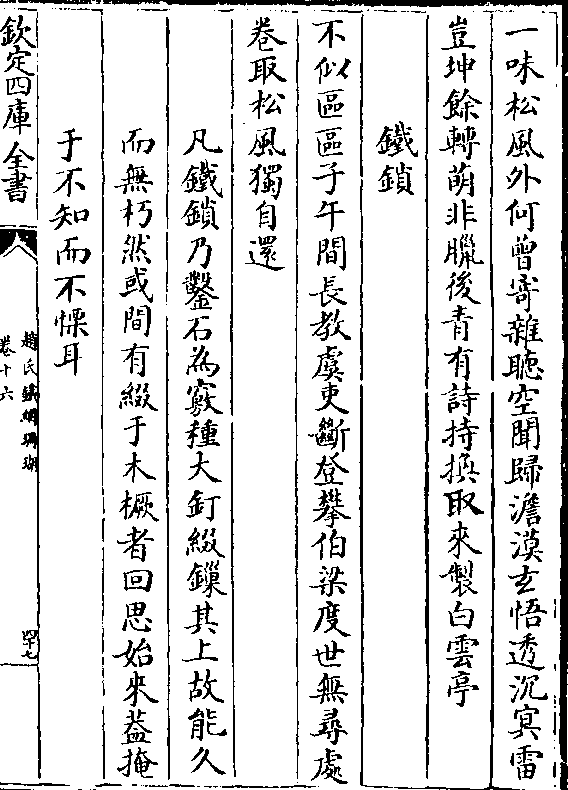 一味松風外何曽寄雜聽空聞歸澹漠玄悟透沉㝠雷
豈坤餘轉萌非臘後青有詩持換取來製白雲亭
鐵鎖
不似區區子午間長教虞吏斷登攀伯梁度世無尋處
卷取松風獨自還
凡鐵鎖乃鑿石為竅種大釘綴鏁其上故能久
而無朽然或間有綴于木橛者回思始來葢掩
于不知而不慄耳
欽定四庫全書
趙氏鐵網珊瑚
卷十六
四十七